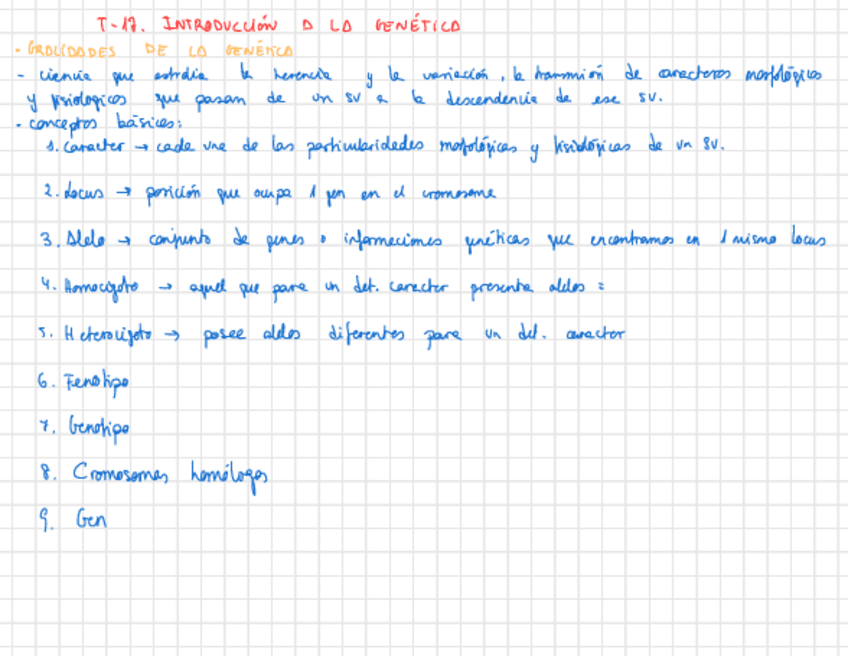 T-17. INTRODUCCIÓN A LA GENÉTICA
- GRALIDADES DE LA GENÉTICA
- ciencia que estudia la herencia y la variación, la transmisión de caracteres morfológicos
y fisiologicos que pasan de un sv a la descendencia de ese sv.
- conceptos básicos:
1. caracter → cada una de las particularidades morfológicas y fisiológicas de un sv.
2. Locus → posición que ocupa 1 gen en el cromosoma
3. Alelo → conjunto de genes o informaciones genéticas que encontramos en 1 mismo locus
4. Homocigoto → aquel que para un det. caracter presenta alelos =
5. Heterocigoto → posee alelos diferentes para un det. caracter
6. Fenotipo
7. Genotipo
8. Cromosomas homólogos
9. Gen